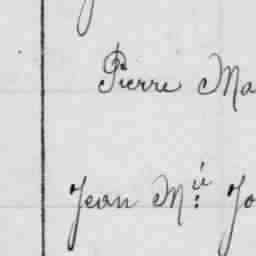 Pierre Ma
Jean M.ie Jo